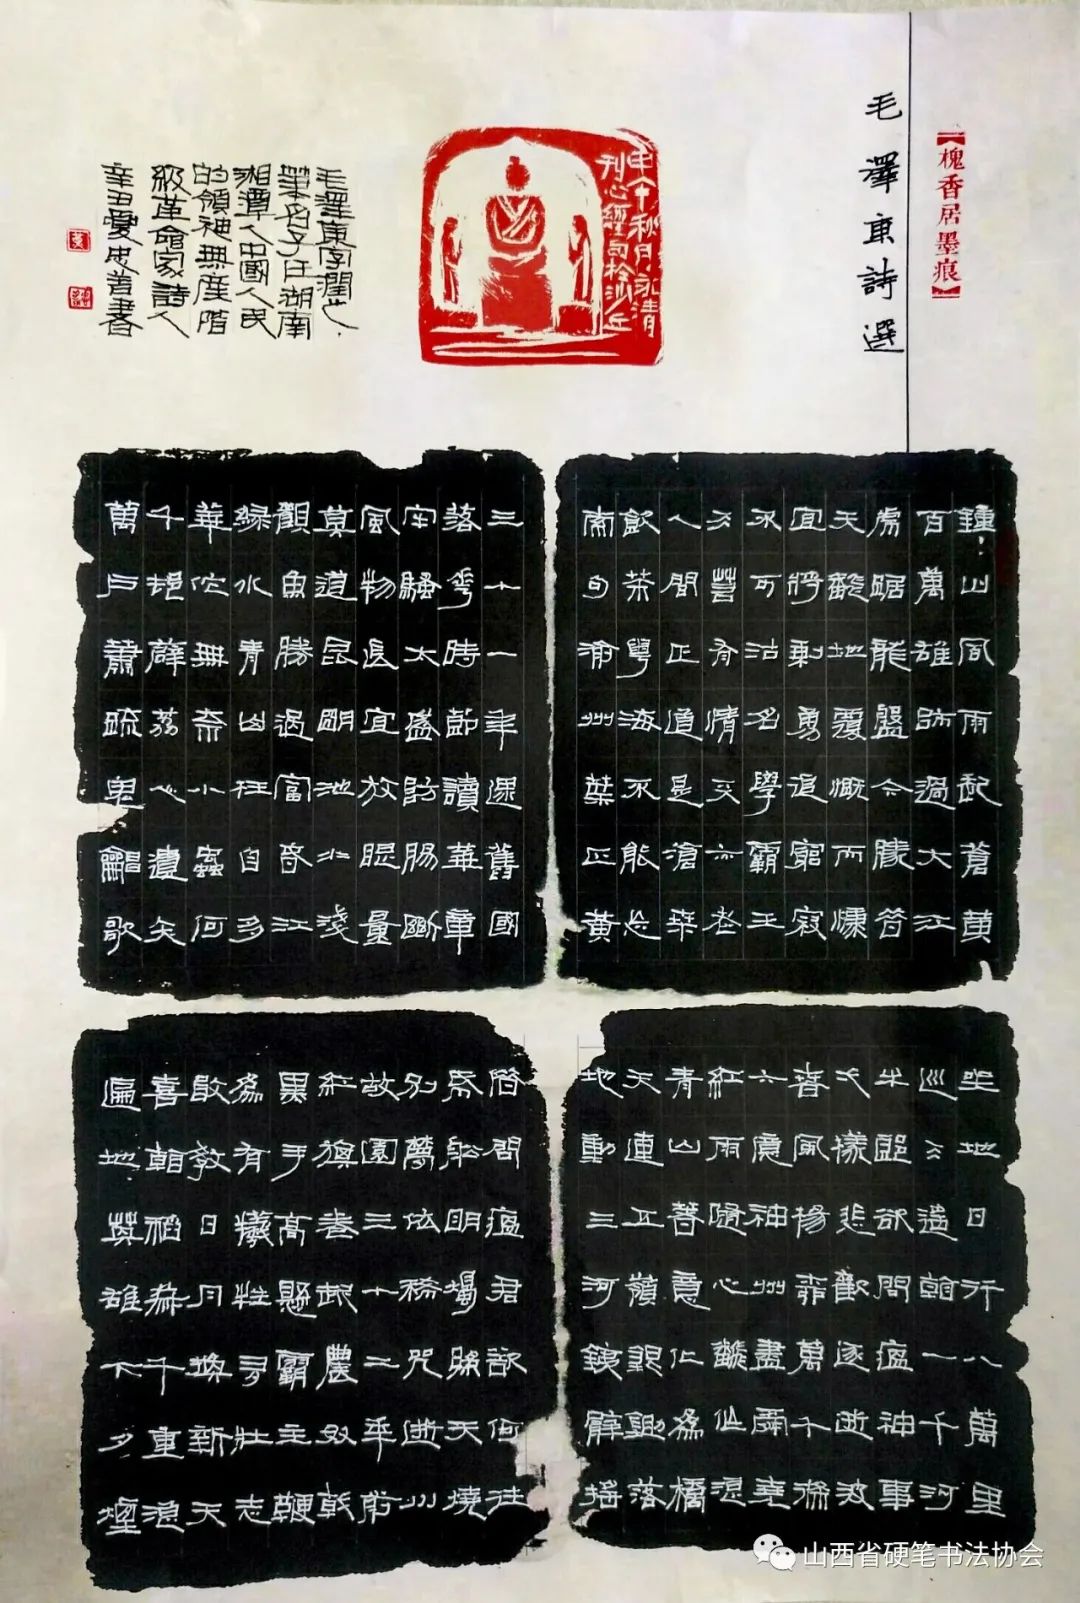 【槐香居墨痕】
毛澤東詩選
鍾山風雨起蒼黄
百萬雄師過大江
虎踞龍盤今勝昔
天翻地覆慨而慷
宜將剩勇追窮寇
不可沽名學霸王
天若有情天亦老
人間正道是滄桑
飲茶粤海不能忘
索句渝州葉正黄
三十一年還舊國
落花時節讀華章
牢騷太盛防腸斷
風物長宜放眼量
莫道昆明池水淺
觀魚勝過富春江
緑水青山枉自多
華佗無奈小蟲何
千邨薜荔人遺矢
萬户蕭疏鬼唱歌
坐地日行八萬里
巡天遥看一千河
牛郎欲問瘟神事
一樣悲歡逐逝波
春風楊柳萬千條
六億神州盡舜堯
紅雨隨心翻作浪
青山着意化爲橋
天連五嶺銀鋤落
地動三河鐵臂摇
借問瘟君欲何往
紙船明燭照天燒
别夢依稀咒逝川
故園三十二年前
紅旗卷起農奴戟
黑手高懸霸主鞭
爲有犧牲多壯志
敢教日月换新天
喜看稻菽千重浪
遍地英雄下夕煙
甲午秋月永清
刊心經句於沙丘
毛澤東字潤之
筆名子任湖南
湘潭人中國人民
的領袖無産階
級革命家詩人
辛丑忠善書
山西省硬笔书法协会